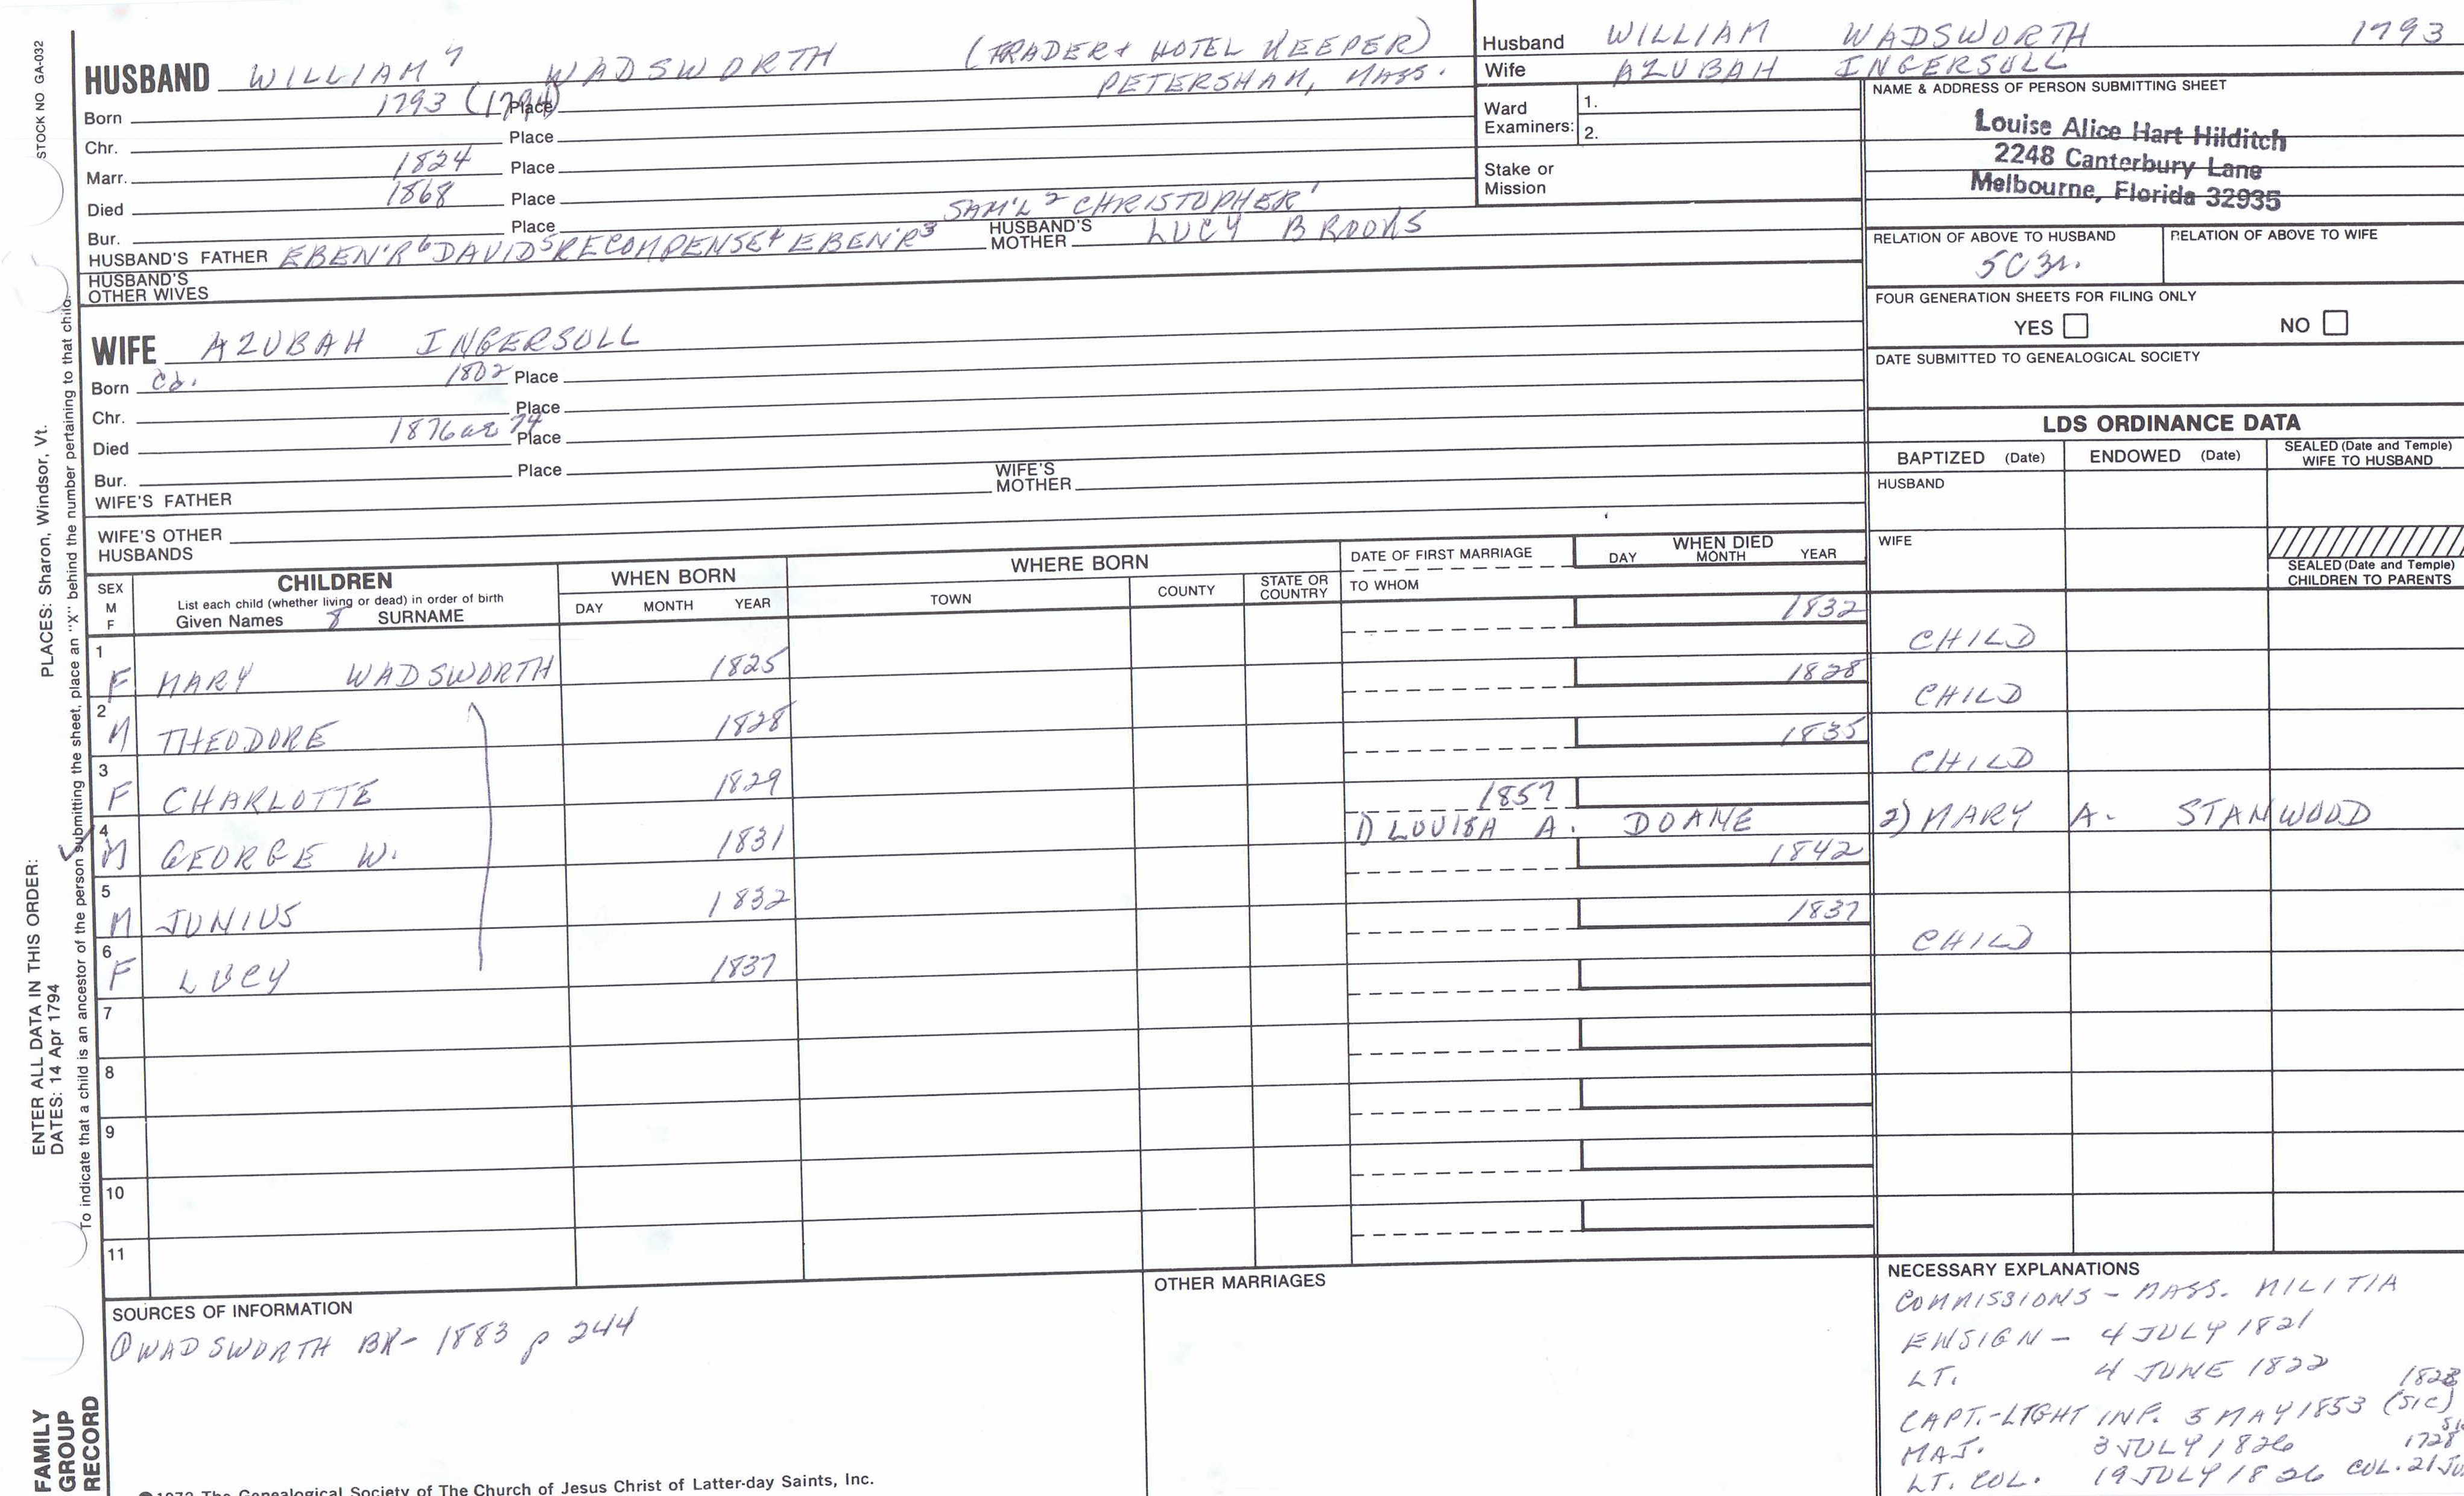 STOCK NO GA-032
HUSBAND WILLIAM 7 WADSWORTH (TRADER & HOTEL KEEPER)
Born 1793 (1794) Place PETERSHAM, MASS.
Chr. Place
Marr. 1824 Place
Died 1868 Place
Bur. Place
SAM'L 2 CHRISTOPHER 1
HUSBAND'S FATHER EBEN'R 6 DAVID 5 RECOMPENSE 4 EBEN'R 3 HUSBAND'S MOTHER LUCY BROOKS
HUSBAND'S OTHER WIVES
WIFE AZUBAH INGERSOLL
Born Ca. 1802 Place
Chr. Place
Died 1876 ae 74 Place
Bur. Place
WIFE'S FATHER WIFE'S MOTHER
WIFE'S OTHER HUSBANDS
Husband WILLIAM WADSWORTH 1793
Wife AZUBAH INGERSULL
Ward Examiners: 1.
2.
Stake or Mission
NAME & ADDRESS OF PERSON SUBMITTING SHEET
Louise Alice Hart Hilditch
2248 Canterbury Lane
Melbourne, Florida 32935
RELATION OF ABOVE TO HUSBAND RELATION OF ABOVE TO WIFE
5C3r.
FOUR GENERATION SHEETS FOR FILING ONLY
YES NO
DATE SUBMITTED TO GENEALOGICAL SOCIETY
LDS ORDINANCE DATA
BAPTIZED (Date) ENDOWED (Date) SEALED (Date and Temple) WIFE TO HUSBAND
HUSBAND
WIFE
SEALED (Date and Temple) CHILDREN TO PARENTS
SEX M F CHILDREN WHEN BORN WHERE BORN DATE OF FIRST MARRIAGE WHEN DIED
List each child (whether living or dead) in order of birth
Given Names 8 SURNAME DAY MONTH YEAR TOWN COUNTY STATE OR COUNTRY TO WHOM DAY MONTH YEAR
1 F MARY WADSWORTH 1825 1832 CHILD
2 M THEODORE 1828 1828 CHILD
3 F CHARLOTTE 1829 1835 CHILD
4 M GEORGE W. 1831 1857 1) LOUISA A. DOANE 2) MARY A. STANWOOD
5 M JUNIUS 1832 1842
6 F LUCY 1837 1837 CHILD
7
8
9
10
11
SOURCES OF INFORMATION
① WADSWORTH BK- 1883 p 244
OTHER MARRIAGES
NECESSARY EXPLANATIONS
COMMISSIONS - MASS. MILITIA
ENSIGN - 4 JULY 1821
LT. 4 JUNE 1822
1823
CAPT.-LIGHT INF. 3 MAY 1853 (SIC)
MAJ. 3 JULY 1826 1728
LT. COL. 19 JULY 1826 COL. 21
PLACES: Sharon, Windsor, Vt.
ENTER ALL DATA IN THIS ORDER:
DATES: 14 Apr 1794
To indicate that a child is an ancestor of the person submitting the sheet, place an "X" behind the number pertaining to that child.
FAMILY GROUP RECORD
The Genealogical Society of The Church of Jesus Christ of Latter-day Saints, Inc.